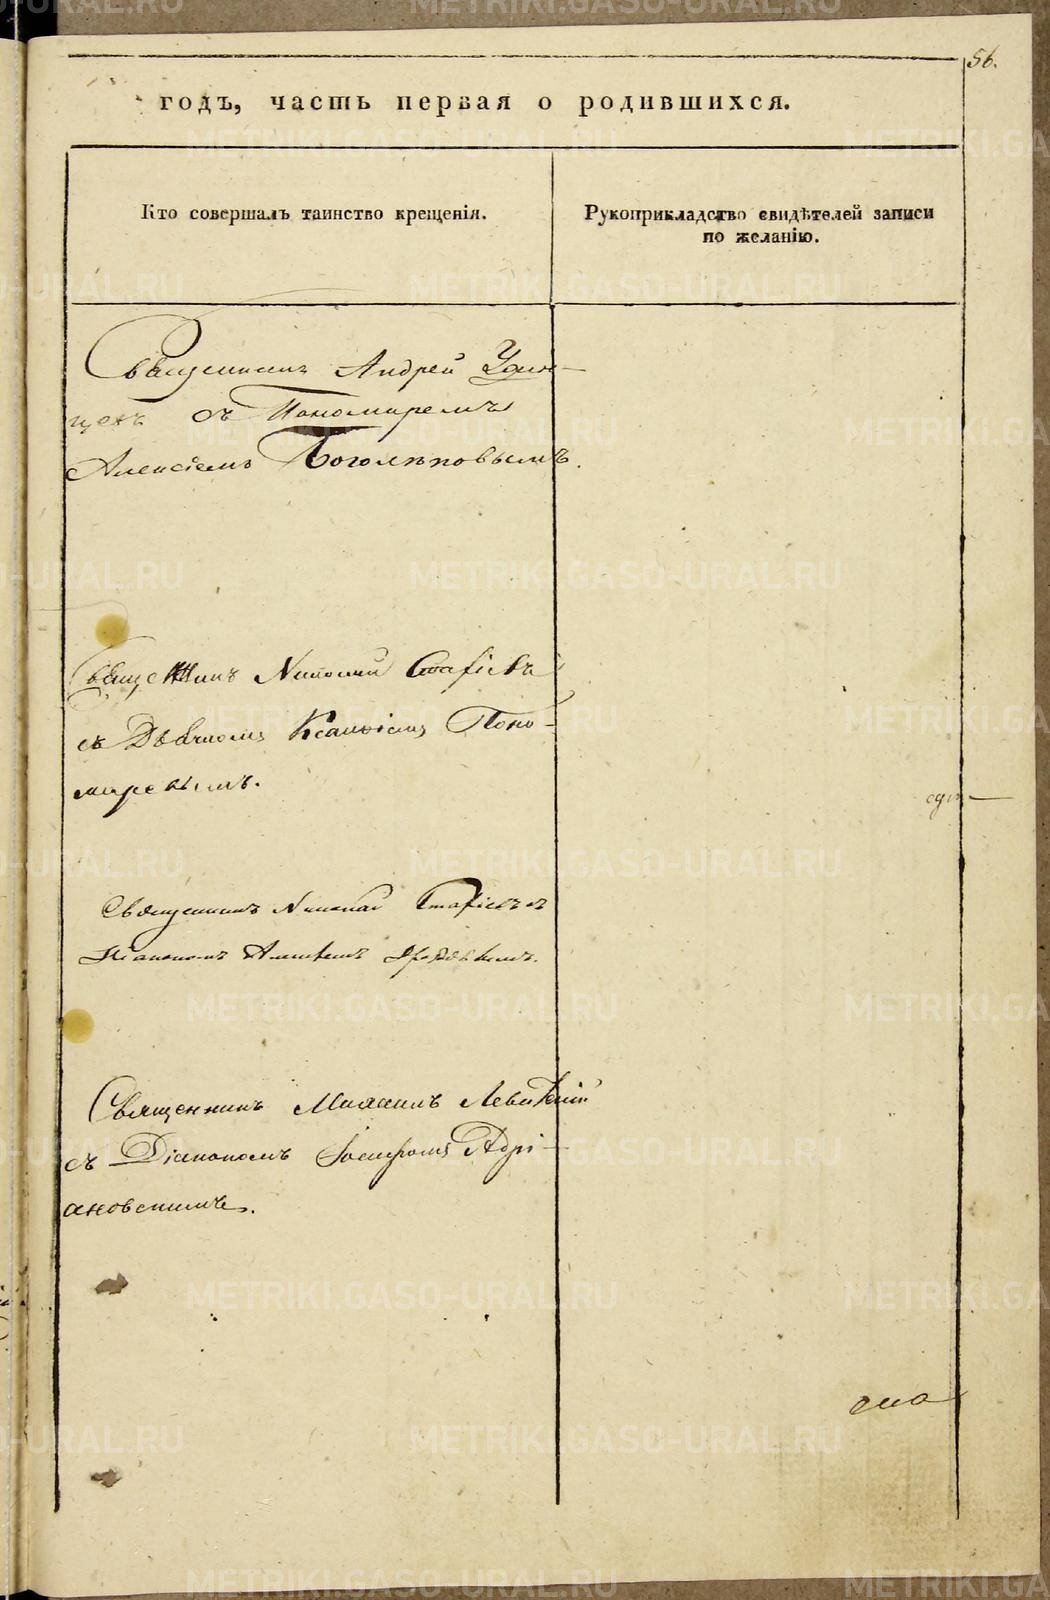 56.
годъ, часть первая о родившихся.
Кто совершалъ таинство крещенія.
Рукоприкладство свидѣтелей записи
по желанію.
Священникъ Андрей Удин-
цевъ съ Пономаремъ
Алексіемъ Боголѣповымъ.
Священникъ Николай Стафіевъ
съ Дьячкомъ Ксанѳіемъ Поно-
маревымъ.
Священникъ Николай Стафіевъ съ
Діакономъ
Священникъ Михаилъ Левитскій
съ Діакономъ Іосифомъ Адрі-
ановскимъ.
METRIKI.GASO-URAL.RU